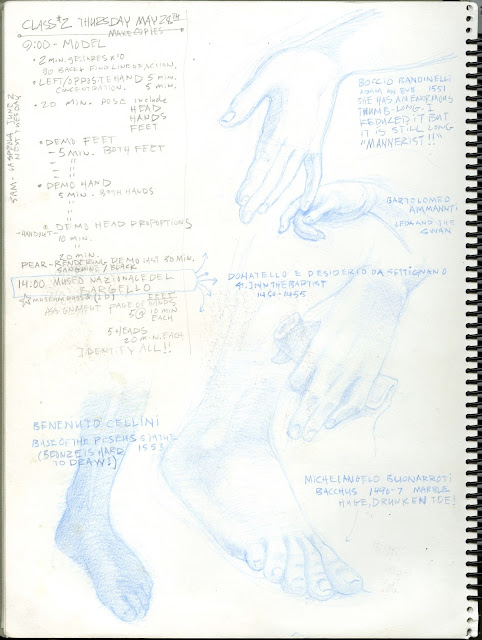 CLASS #2 THURSDAY MAY 28TH
MAKE COPIES
9:00 - MODEL
• 2 MIN. GESTURES X 10
GO BACK & FIND LINE OF ACTION
• LEFT/OPPOSITE HAND 5 MIN.
CONCENTRATION. 5 MIN.
• 20 MIN. POSE include
HEAD
HANDS
FEET
• DEMO FEET
- 5 MIN. BOTH FEET
- " "
" "
• DEMO HAND
5 MIN. BOTH HANDS
"
"
• DEMO HEAD PROPORTIONS
-HANDOUT- 10 MIN.
"
20 MIN.
PEAR - RENDERING DEMO 30 MIN.
SANGUINE / BLACK
14:00 MUSEO NAZIONALE DEL
BARGELLO
☆ MUSEUM PASS & (I.D.)
ASSIGNMENT PAGE OF HANDS
FEET
5@ 10 MIN
EACH
5 HEADS
20 MIN. EACH
IDENTIFY ALL!!
9AM - LA SPECOLA JUNE 2
NEXT TUESDAY
BOCCIO BANDINELLI
ADAM AN EVE 1551
SHE HAS AN ENORMOUS
THUMB - LONG. I
REDUCED IT BUT
IT IS STILL LONG
"MANNERIST!!"
BARTOLOMEO
AMMANNTI
LEDA AND THE
SWAN
DONATELLO E DESIDERIO DA SETTIGNANO
ST. JOHN THE BAPTIST
1450-1455
BENENUTO CELLINI
BASE OF THE PERSEUS STATUE
(BRONZE IS HARD 1553
TO DRAW!)
MICHELANGELO BUONARROTI
BACCHUS 1496-7 MARBLE
HUGE, DRUNKEN TOE!